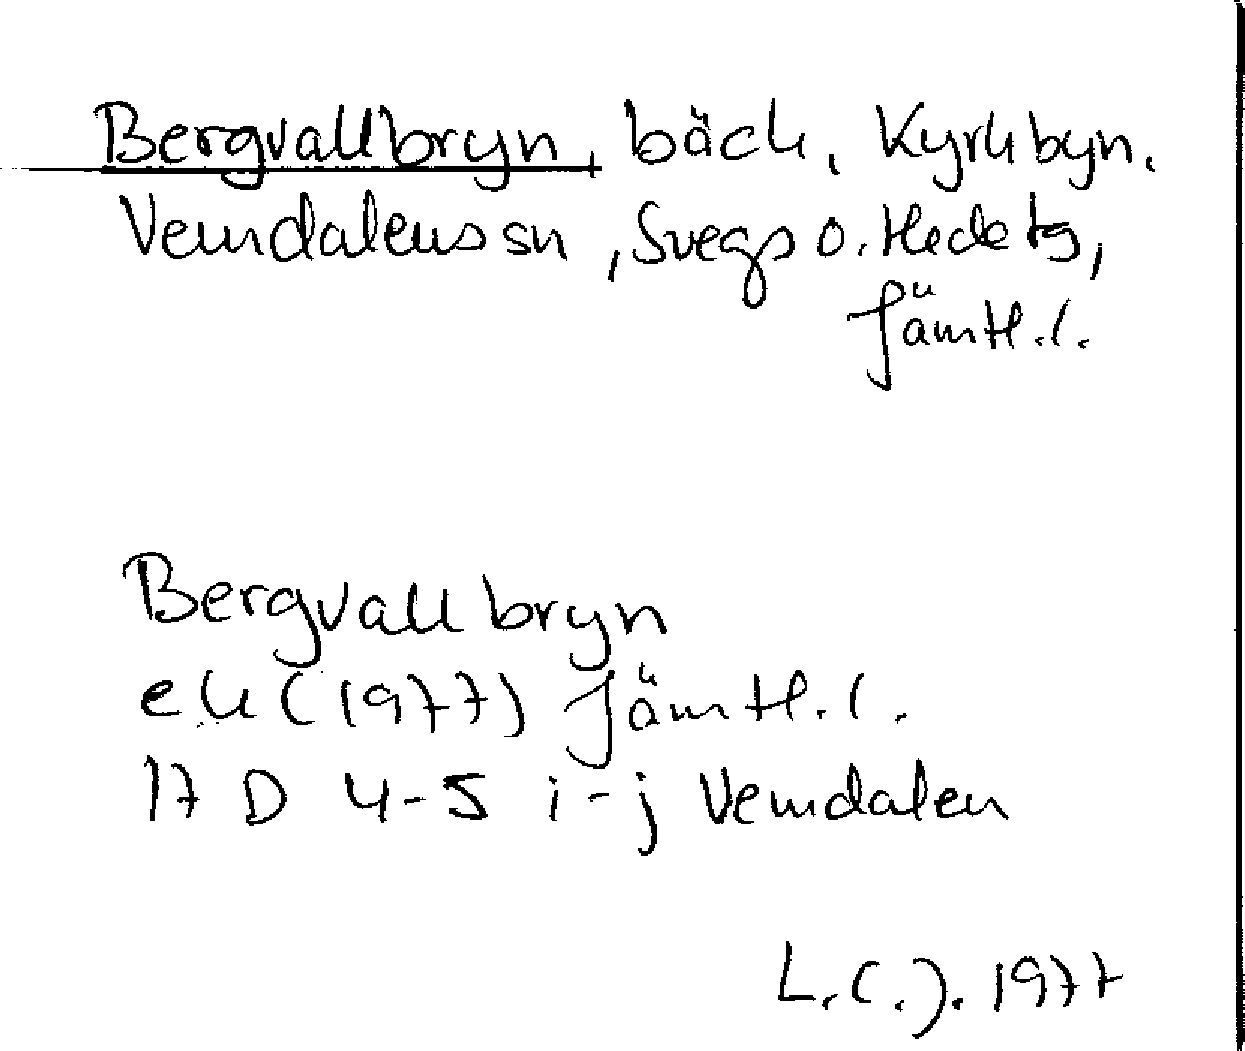 Bergvallbryn, bäck, Kyrkbyn.
Vemdalens sn, Svegs o. Hede tg,
Jämtl. l.
Bergvallbryn
ek (1977) Jämtl. l.
17 D 4-5 i-j Vemdalen
L.C.J. 1977